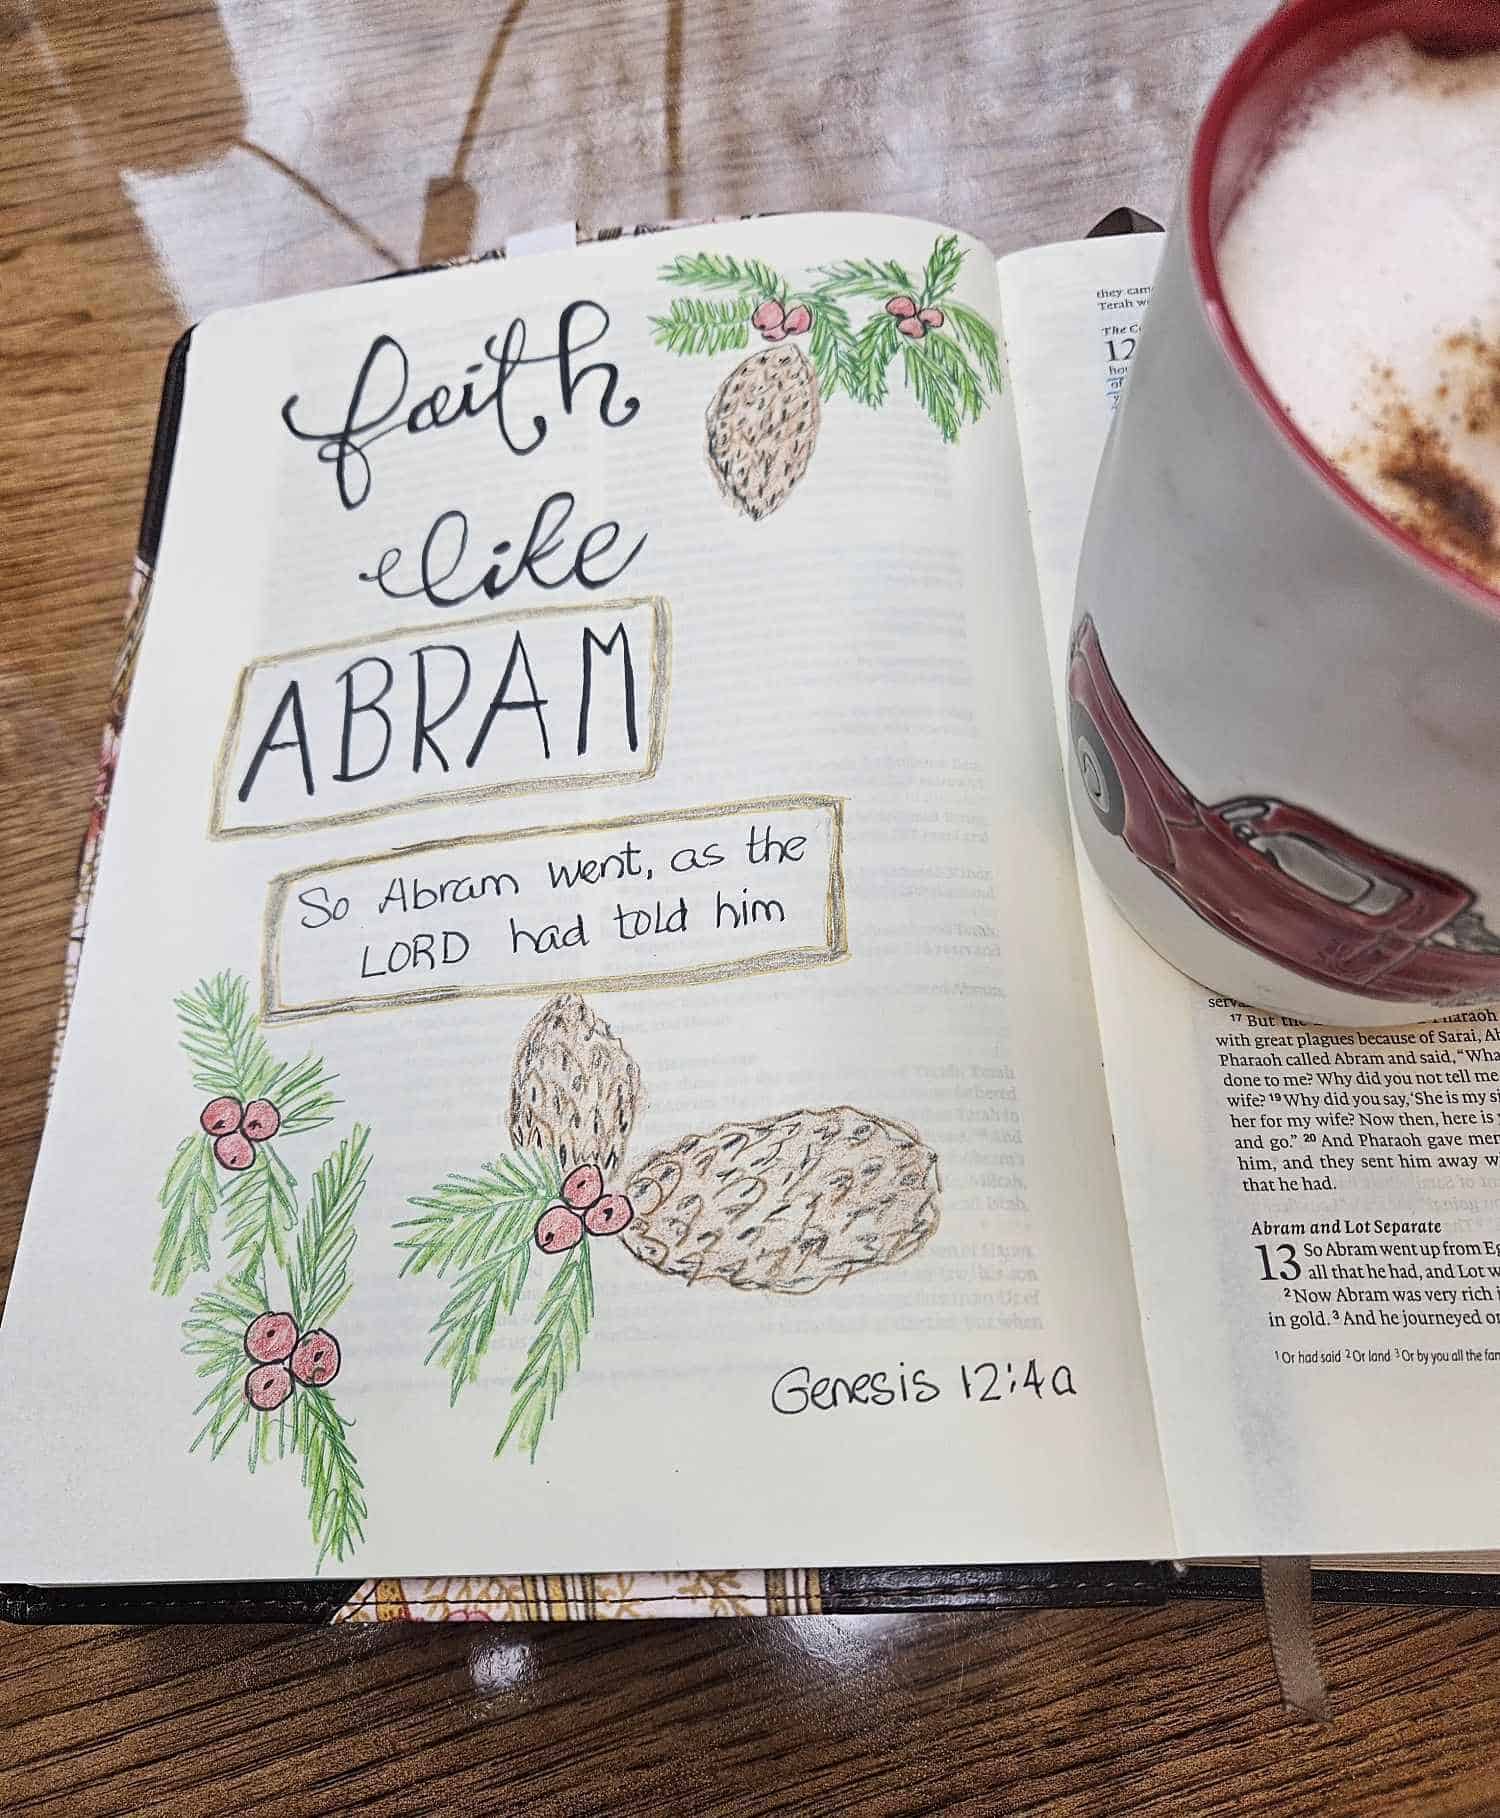 faith
like
ABRAM
So Abram went, as the
LORD had told him
Genesis 12:4a
they cam
Terah w
The C
12
hou
of
serv
17 But the Pharaoh
with great plagues because of Sarai, Ab
Pharaoh called Abram and said, “Wha
done to me? Why did you not tell me
wife? 19 Why did you say, ‘She is my si
her for my wife? Now then, here is
and go.” 20 And Pharaoh gave men
him, and they sent him away w
that he had.
Abram and Lot Separate
13 So Abram went up from Eg
all that he had, and Lot w
2 Now Abram was very rich i
in gold. 3 And he journeyed on
1 Or had said 2 Or land 3 Or by you all the fam